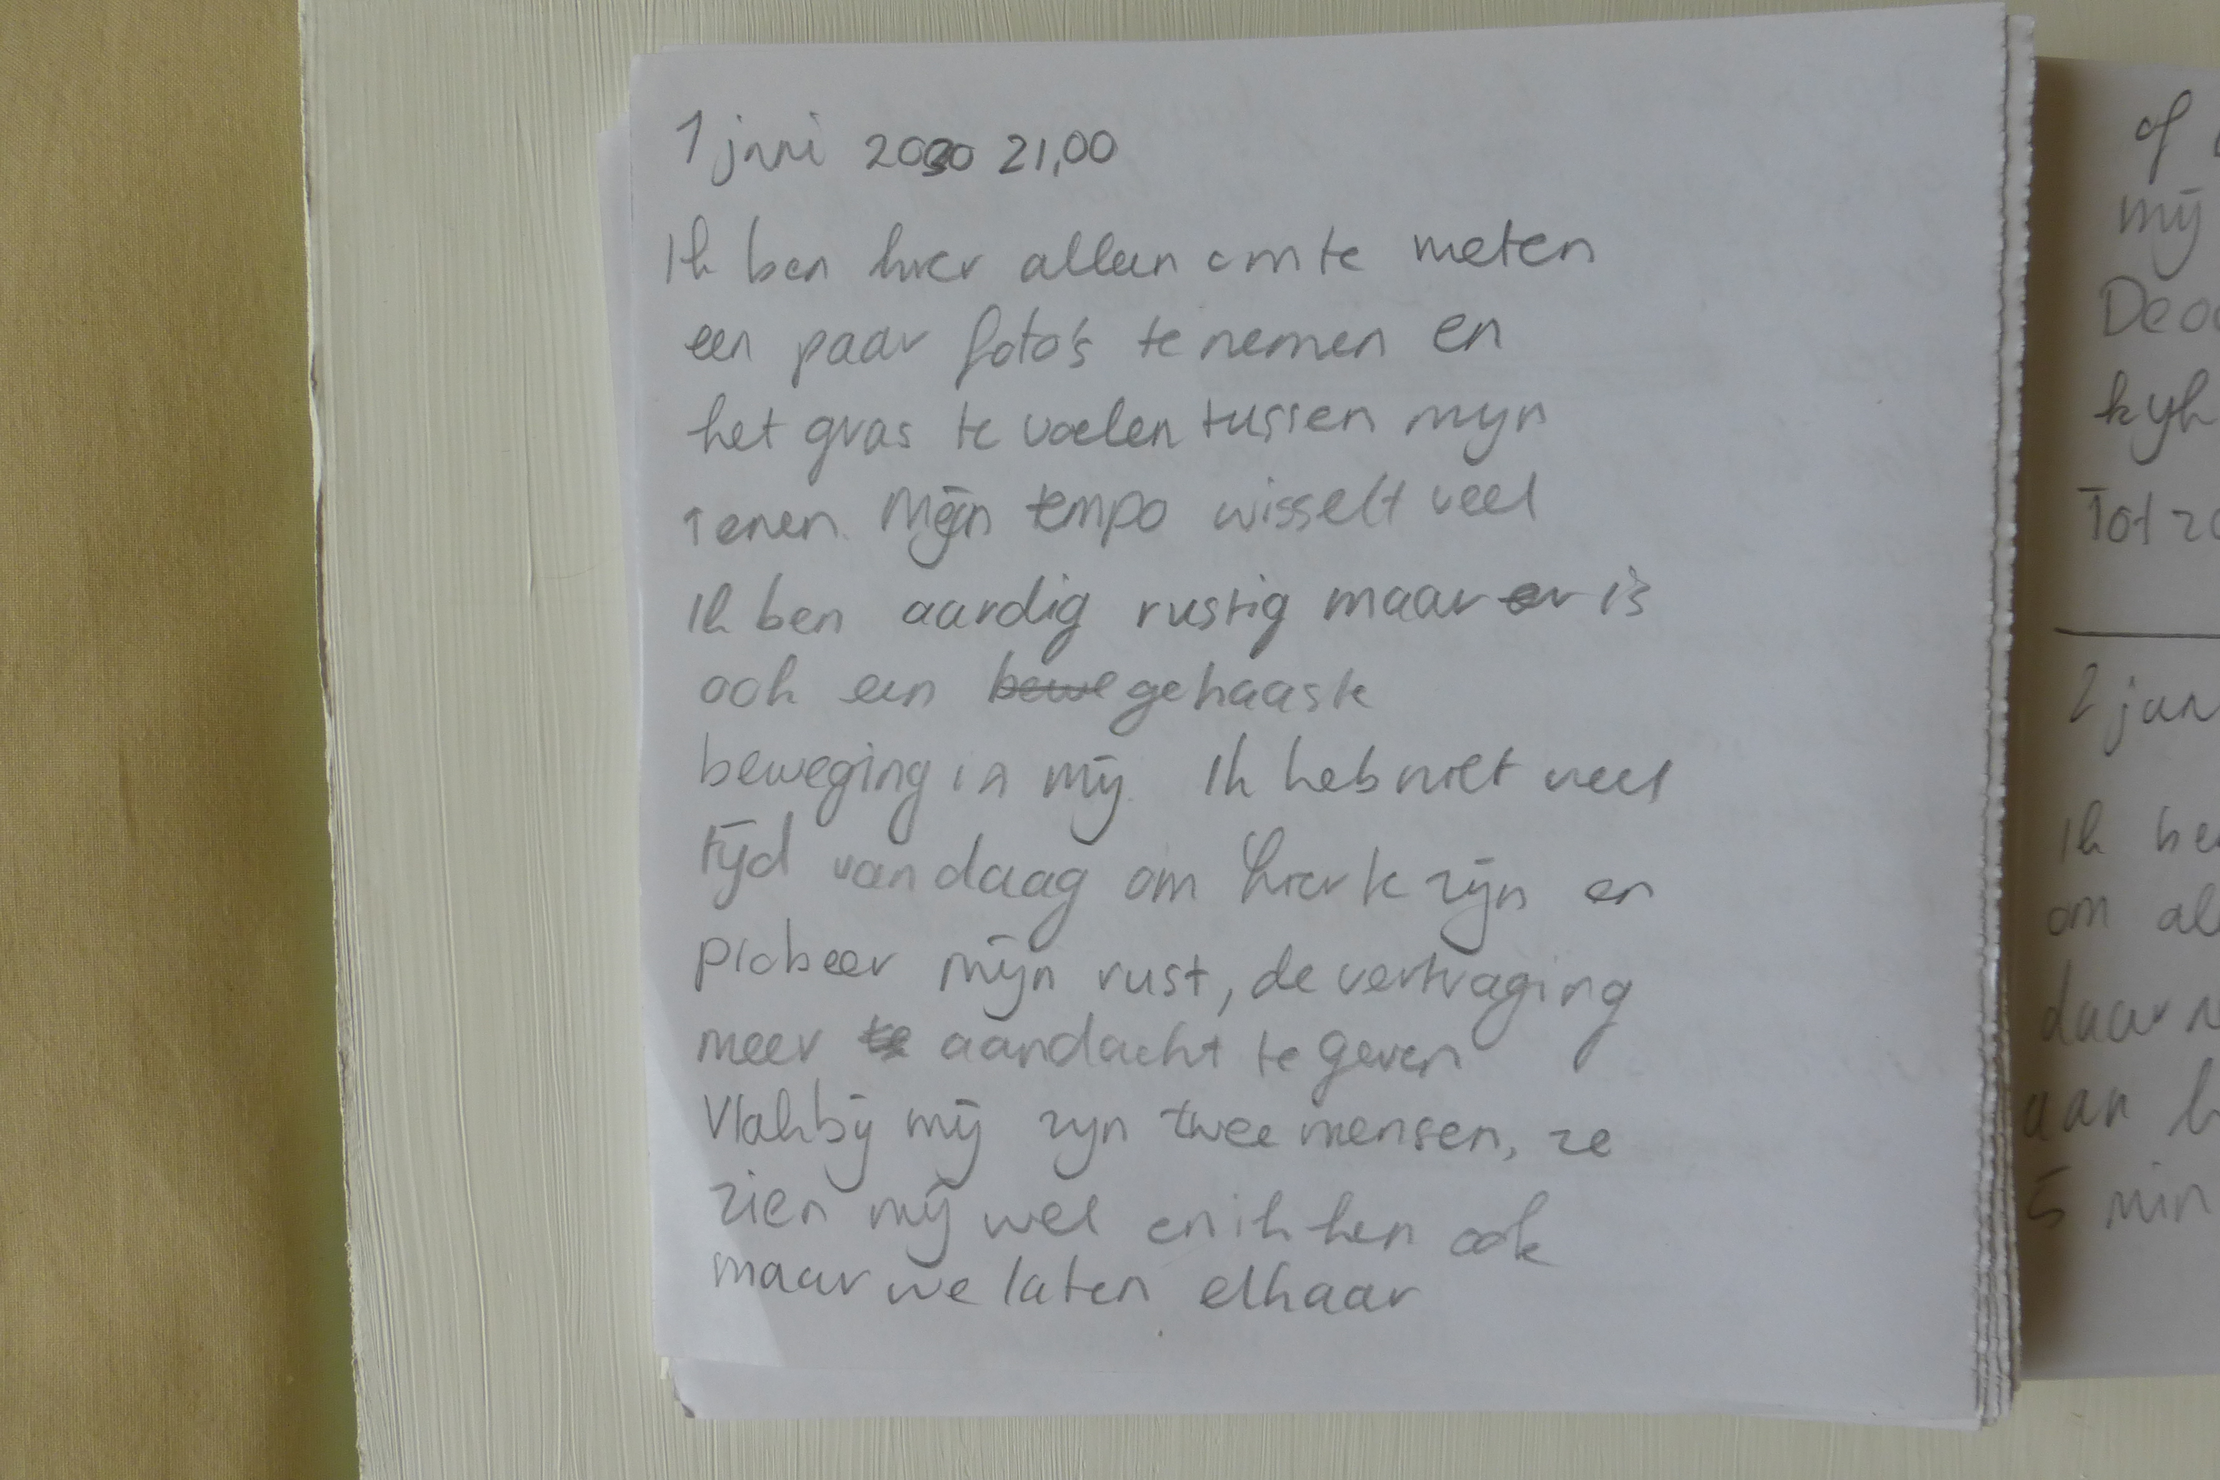 1 juni 2030 21,00
Ik ben hier alleen om te meten
een paar foto's te nemen en
het gras te voelen tussen mijn
tenen. Mijn tempo wisselt veel
Ik ben aardig rustig maar er is
ook een bewe gehaaste
beweging in mij. Ik heb niet veel
tijd vandaag om hier te zijn en
probeer mijn rust, de vertraging
meer te aandacht te geven
Vlakbij mij zijn twee mensen, ze
zien mij wel en ik hen ook
maar we laten elkaar
of
mij
kijk
Tot zo
2 jun
Ik be
om al
daar n
aan h
5 min